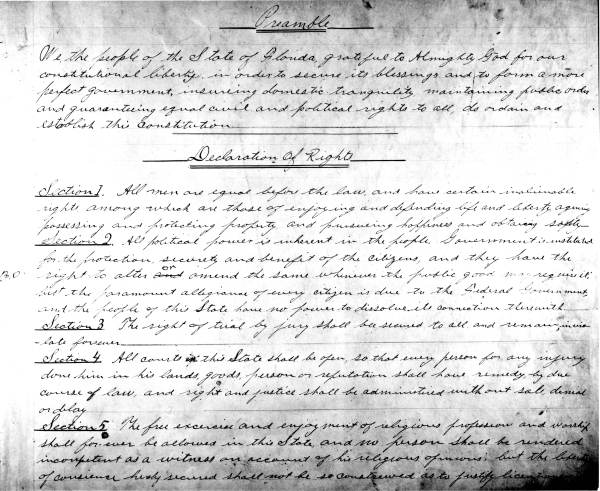 Preamble
We the people of the State of Florida, grateful to Almighty God for our
constitutional liberty, in order to secure its blessings and to form a more
perfect government, insureing domestic tranquility, maintaining public order
and guaranteeing equal civil and political rights to all, do ordain and
establish this Constitution
Declaration Of Rights
Section 1. All men are equal before the law, and have certain inalienable
rights among which are those of enjoying and defending life and liberty,
possessing and protecting property and pursueing happiness and obtaining safety
Section 2 All political power is inherent in the people Government is instituted
for the protection, security and benefit of the citizens, and they have the
right to alter or amend the same whenever the public good may require it
but the paramount allegiance of every citizen is due to the Federal Government,
and the people of this State have no power to dissolve its connection therewith
Section 3 The right of trial by jury shall be secured to all and remain invio-
late forever
Section 4 All courts in this State shall be open, so that every person for any injury
done him in his lands, goods, person or reputation shall have remedy by due
course of law, and right and justice shall be administered without sale, denial
or delay
Section 5 The free exercise and enjoyment of religious profession and worship
shall forever be allowed in this State and no person shall be rendered
incompetent as a witness on account of his religious opinions; but the liberty
of conscience hereby secured shall not be so construed as to justify